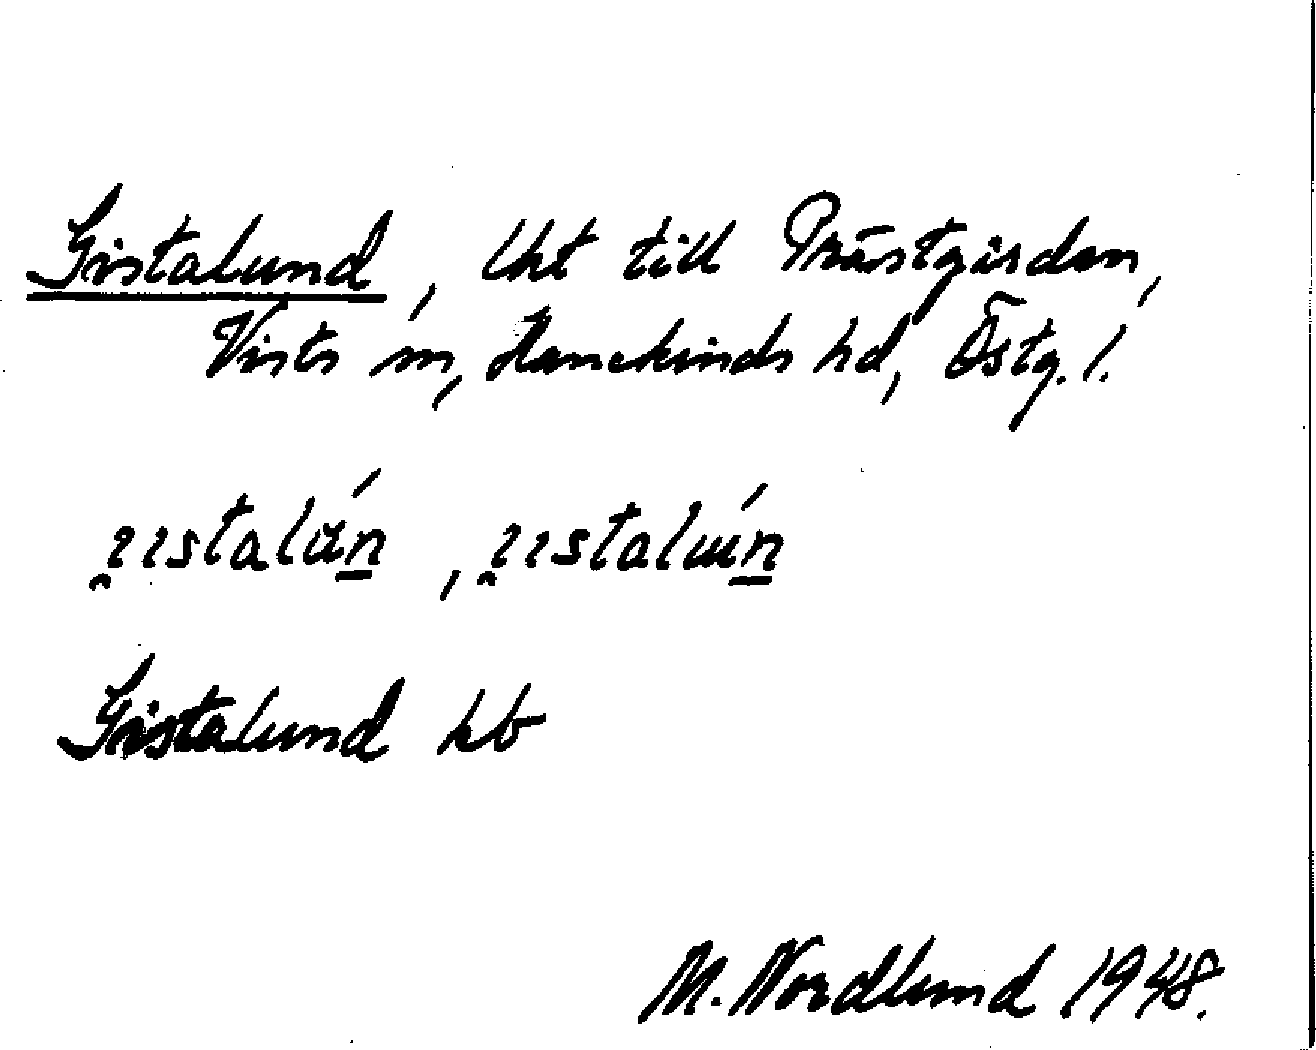 Gistalund, lht till Prästgården,
Vists sn, Hanekinds hd, Östg. l.
Gistalund kb
M. Nordlund 1948.